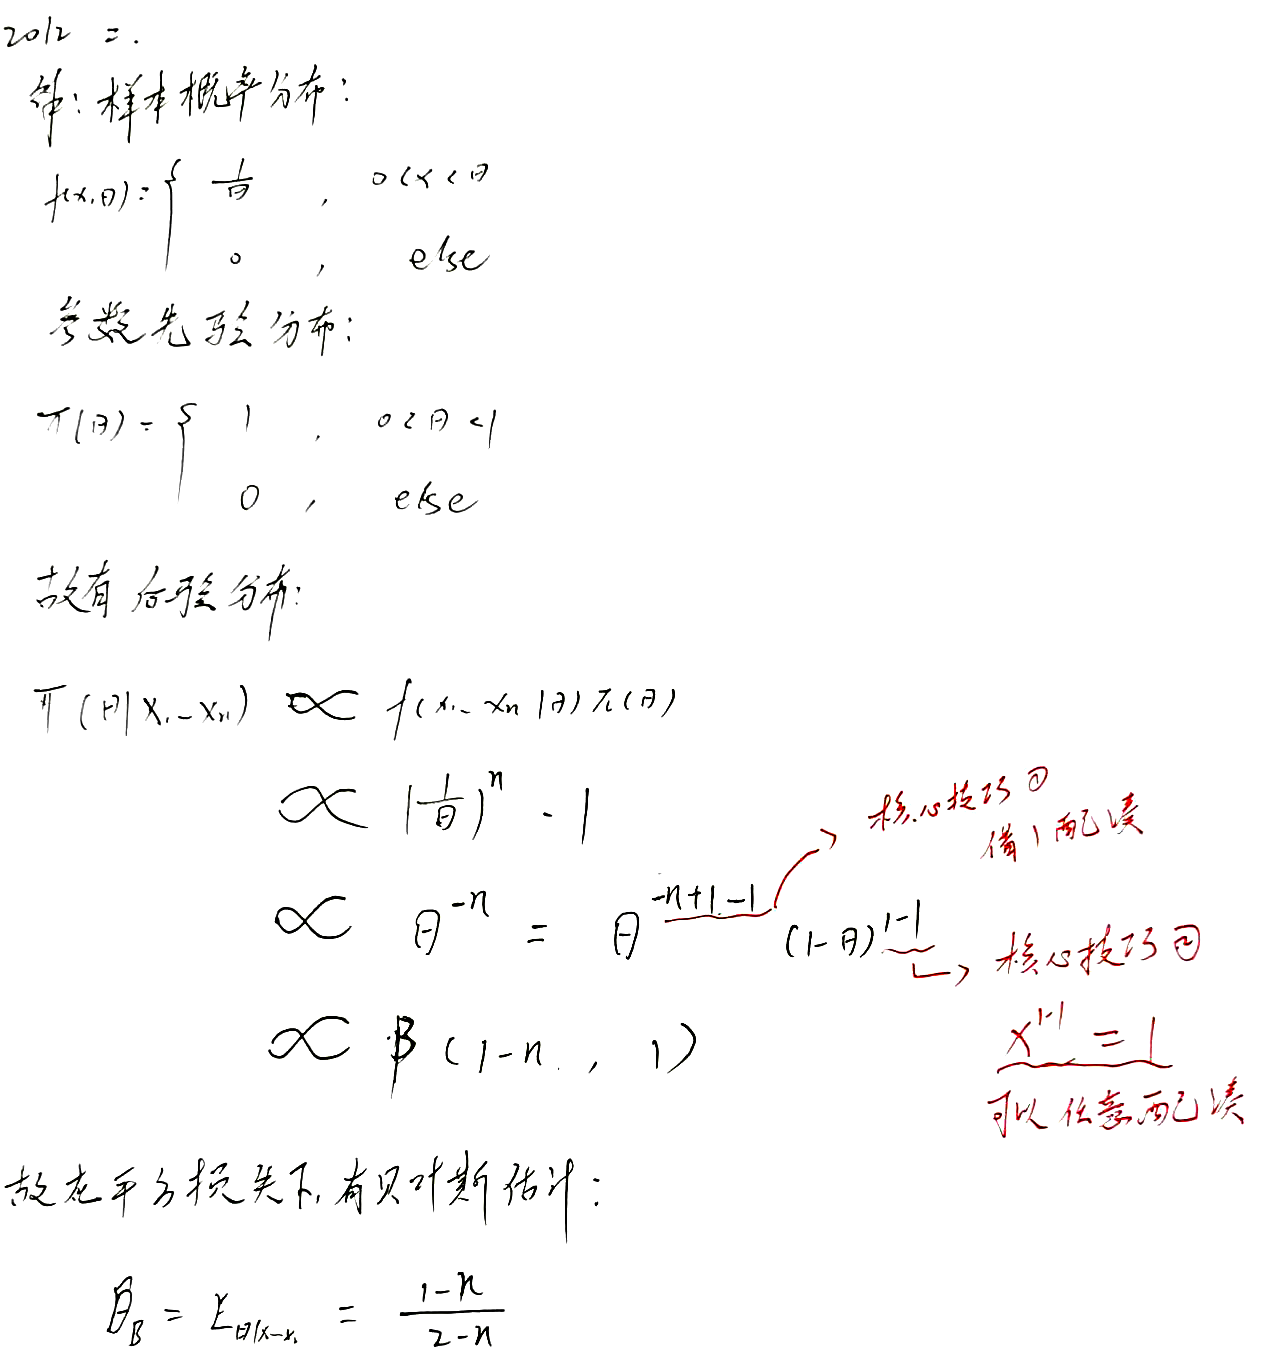 2012 二.
解: 样本概率分布:
f(x,θ)= { 1/θ , 0<x<θ
0 , else
参数先验分布:
π(θ) = { 1 , 0<θ<1
0 , else
故有后验分布:
π(θ|x₁-xₙ) ∝ f(x₁-xₙ|θ)π(θ)
∝ (1/θ)ⁿ · 1
核心技巧①
借1配凑
∝ θ^{-n} = θ^{-n+1-1} (1-θ)^{1-1}
核心技巧②
∝ β(1-n, 1)
x^{1-1} = 1
可以任意配凑
故在平方损失下,有贝叶斯估计:
θ̂_B = E_{θ|x-x₁} = (1-n)/(2-n)